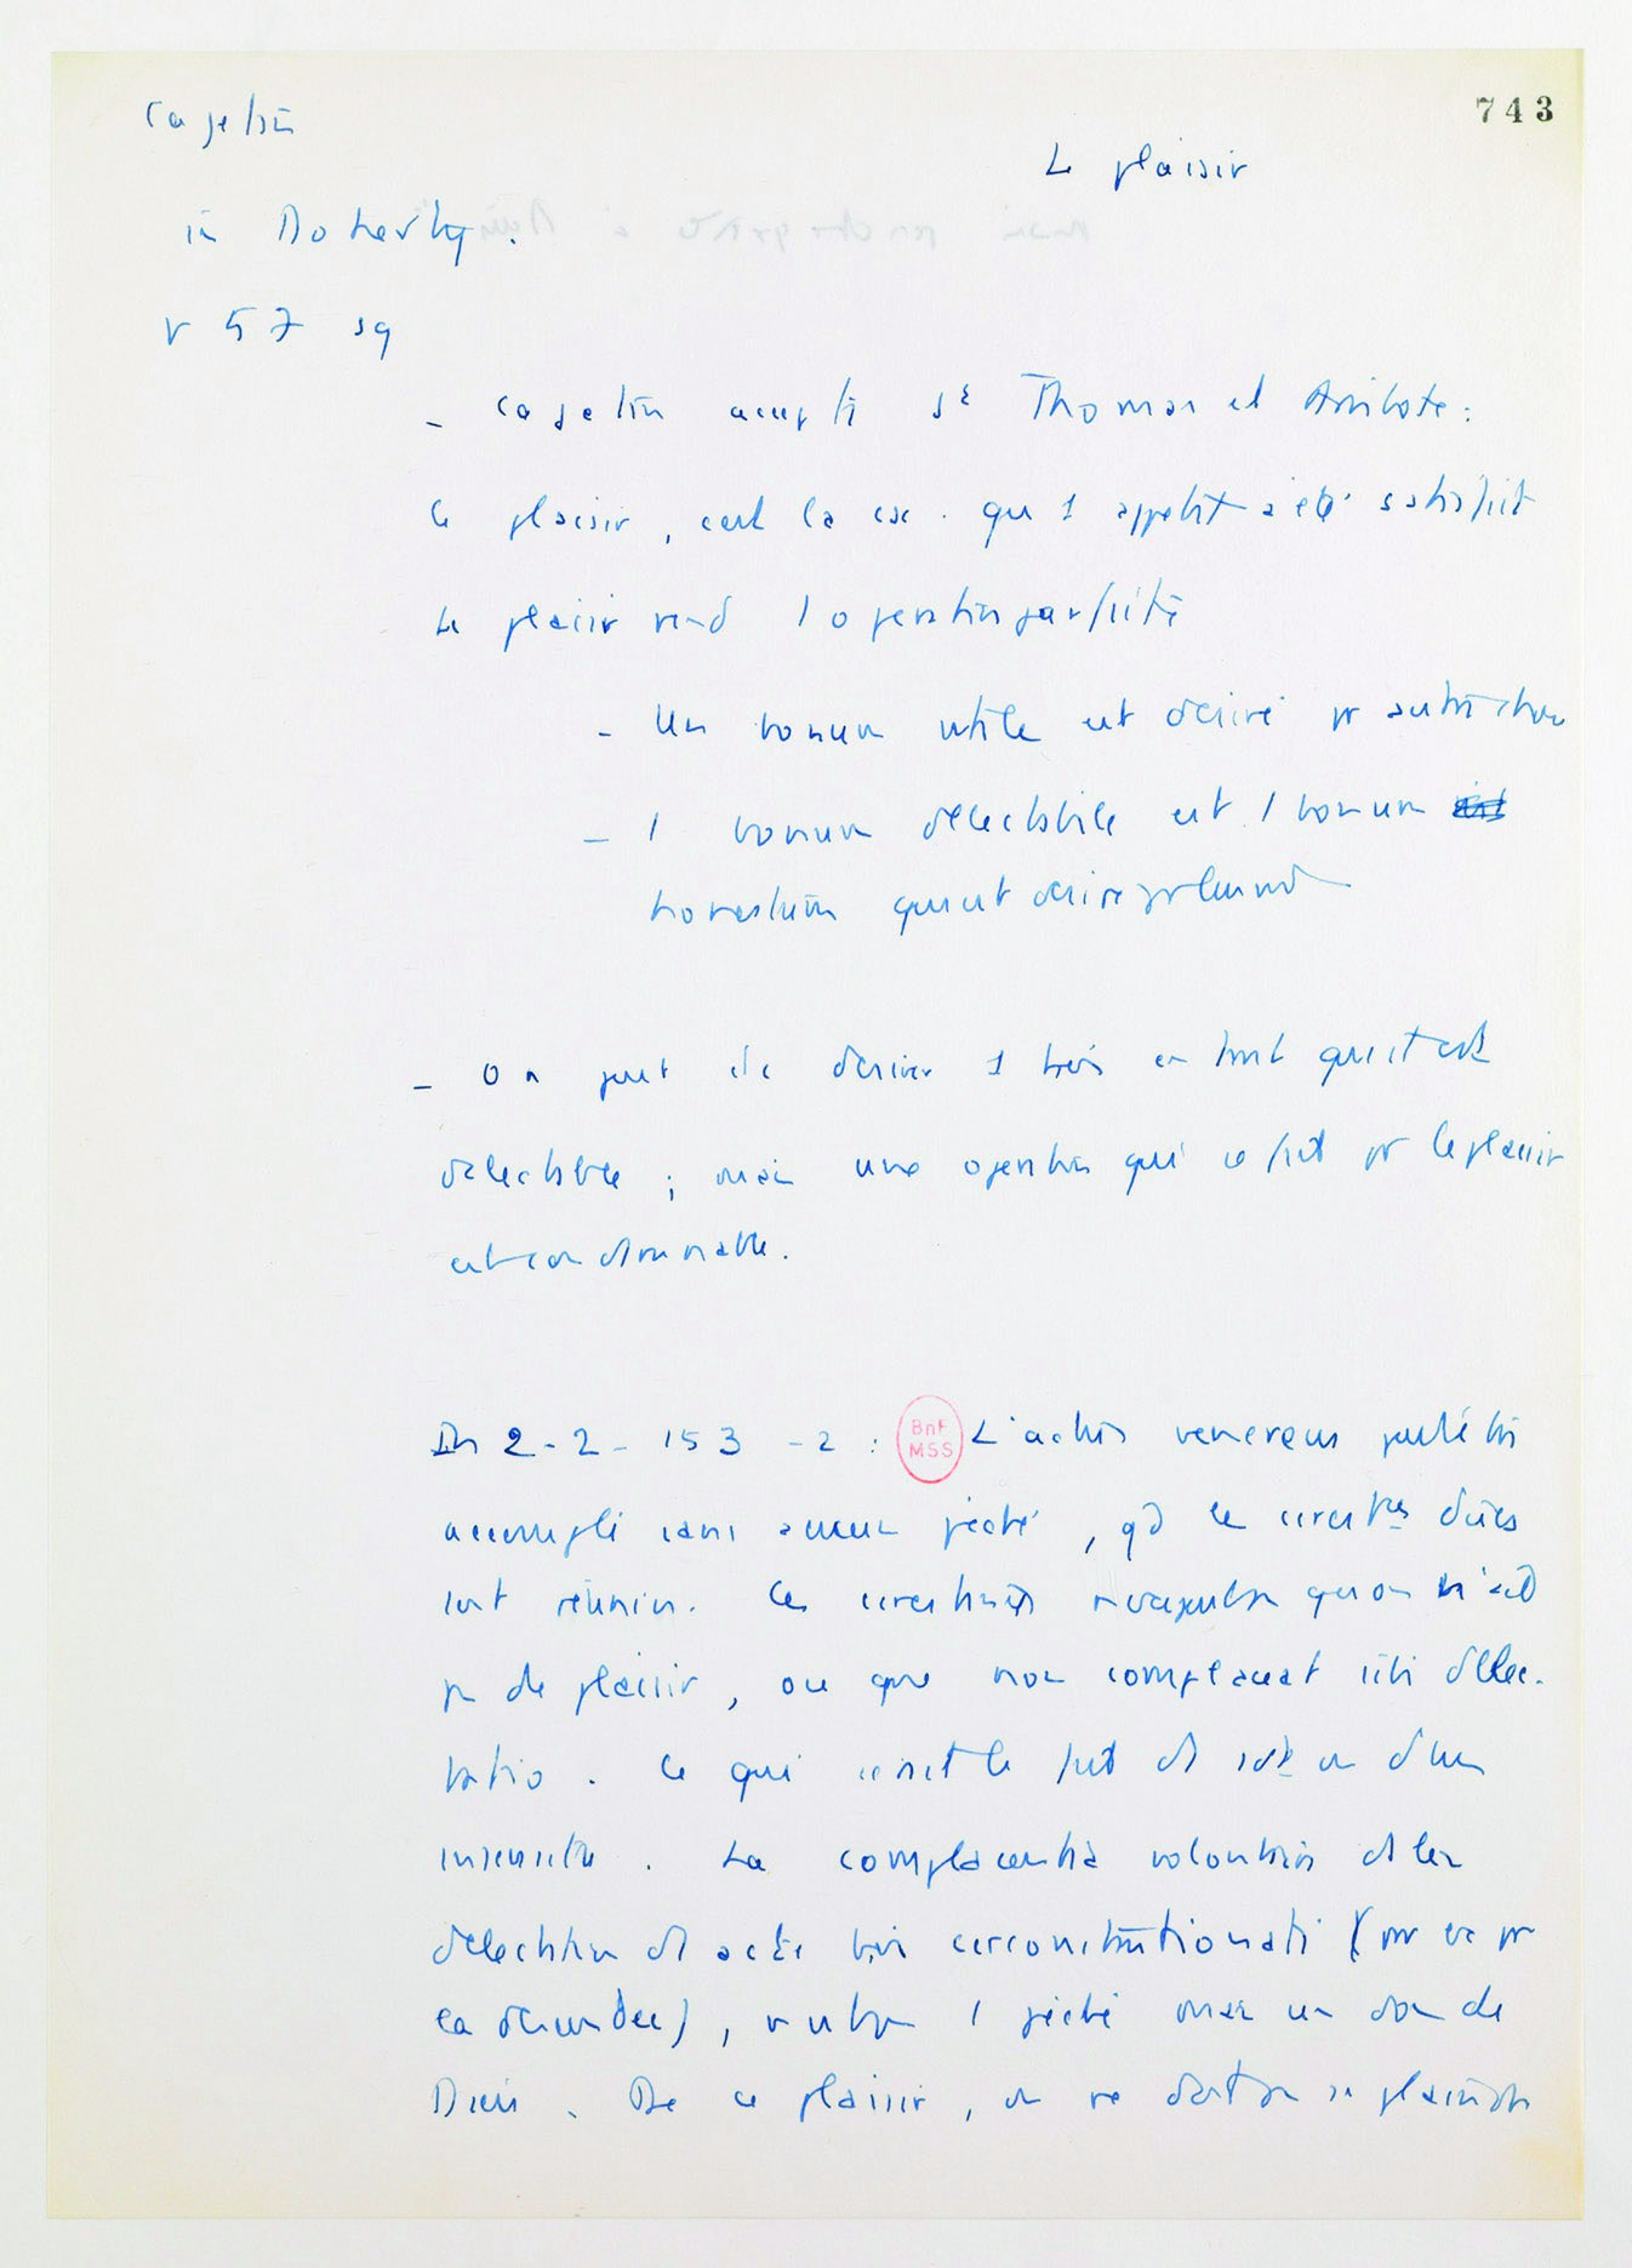 Cajetan
743
Le plaisir
in Doherty.
p 57 sq
- Cajetan accepte St Thomas et Aristote :
le plaisir, c'est la csc. qu 1 appétit a été satisfait
Le plaisir rend l'opération parfaite
- Un bonum utile est désiré pr autre chose
- 1 bonum delectabile est 1 bonum
honestum qui est désiré pr lui-m
- On peut dc désirer 1 bien en tant qu'il est
délectable ; mais une opération qui se fait pr le plaisir
est condamnable.
In 2-2- 153 -2 : L'actus venereus peut être
BnF
MSS
accompli sans aucun péché, qd les circstces dues
sont réunies. Ces circstances ne veulent pas qu'on n'ait
pas de plaisir, ou que non complaceat sibi delec-
tatio. Ce qui serait le fait d'un
insensible. La complacentia volontaire ds la
délectation ds acte bien circonstantionati (pr ou pr
la demander), n'est pas 1 péché mais un don de
Dieu. De ce plaisir, on ne doit pas se plaindre